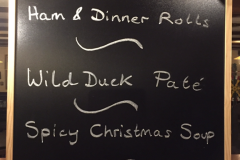 Ham & Dinner Rolls
Wild Duck Paté
Spicy Christmas Soup